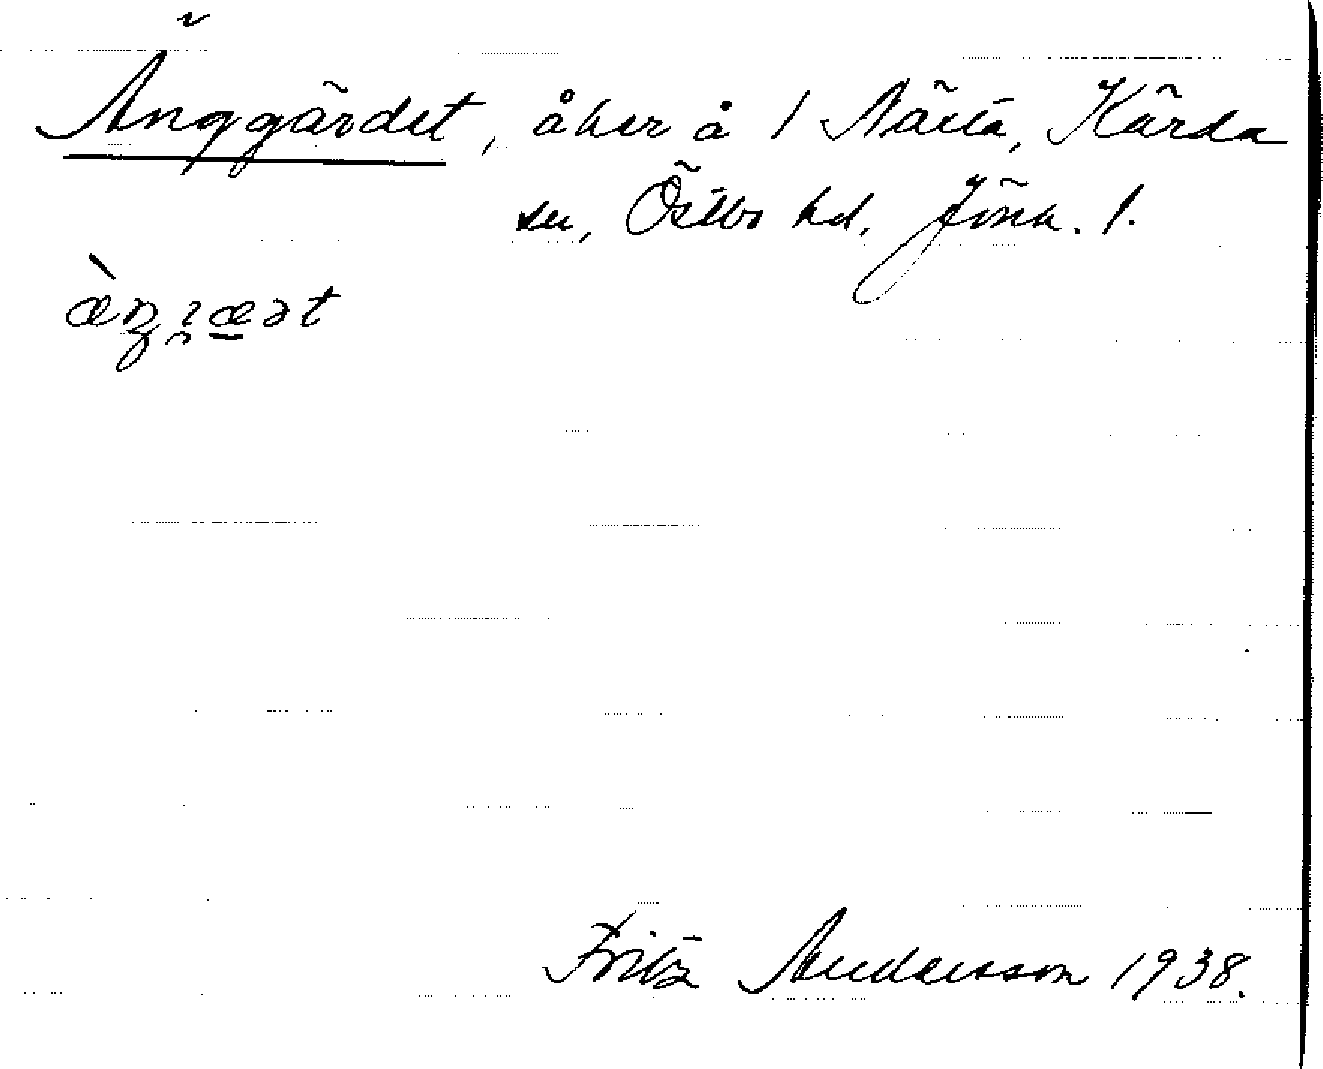 Änggärdet, åker å 1 Nästa, Kärda
sn, Östbo hd. Jönk. l.
Fritz Andersson 1938.